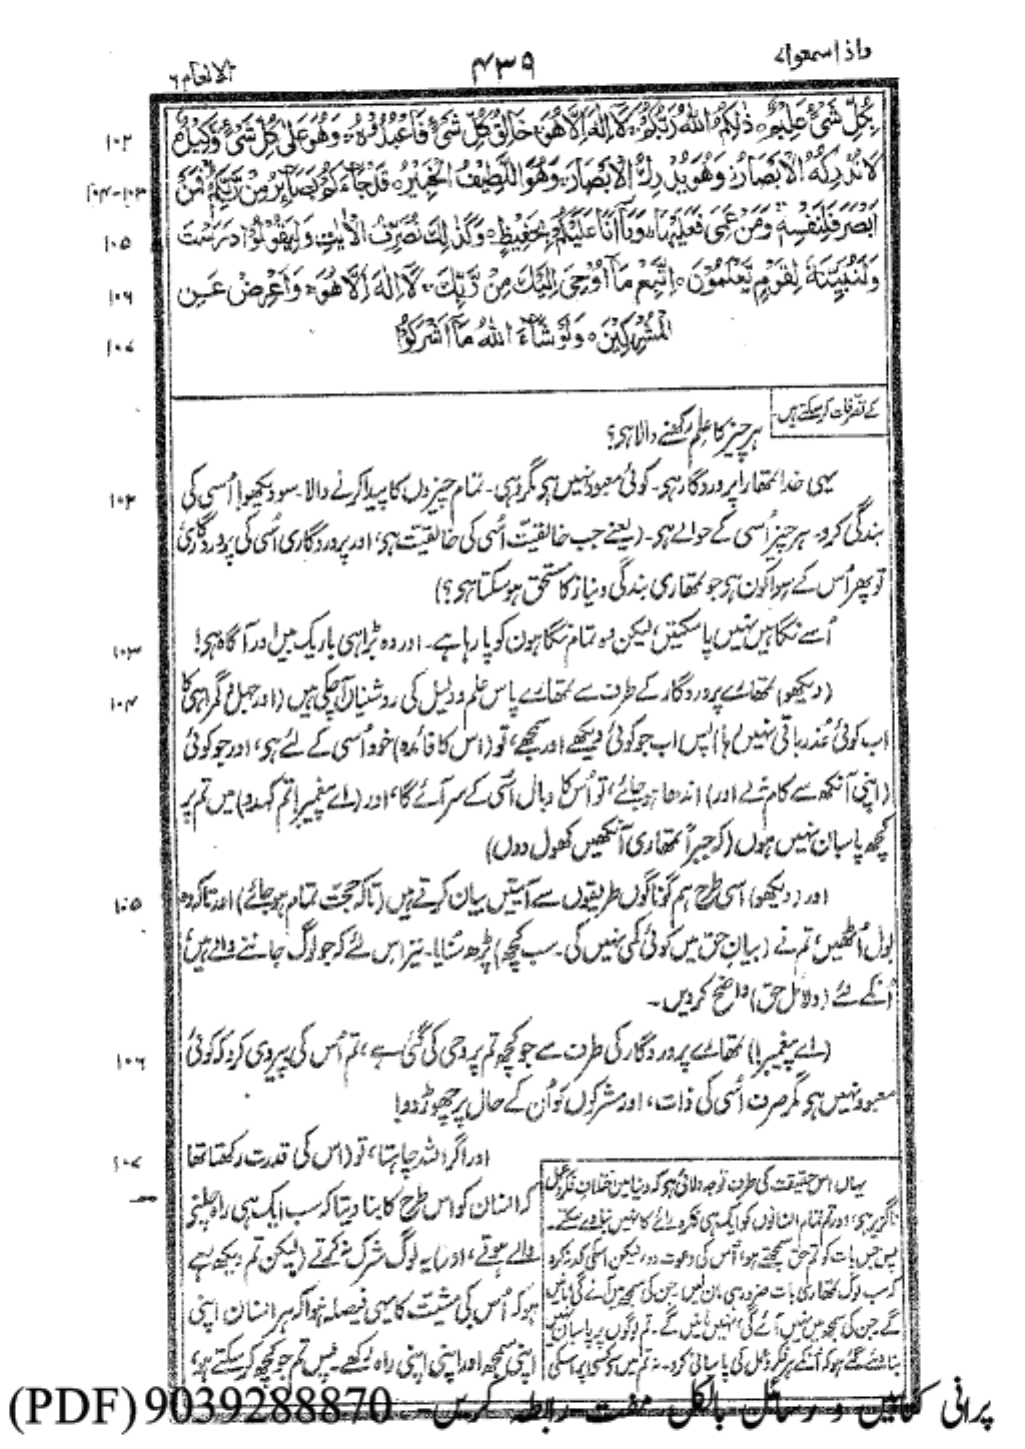 واذا سمعوا ۷
۴۳۹
الانعام ۶
بِكُلِّ شَىْءٍ عَلِيْمٌ ۝ ذٰلِكُمُ اللّٰهُ رَبُّكُمْ ۚ لَآ اِلٰهَ اِلَّا هُوَ ۚ خَالِقُ كُلِّ شَىْءٍ فَاعْبُدُوْهُ ۚ وَهُوَ عَلٰى كُلِّ شَىْءٍ وَّكِيْلٌ ۝
۱۰۲
لَا تُدْرِكُهُ الْاَبْصَارُ ۡ وَهُوَ يُدْرِكُ الْاَبْصَارَ ۚ وَهُوَ اللَّطِيْفُ الْخَبِيْرُ ۝ قَدْ جَآءَكُمْ بَصَآئِرُ مِنْ رَّبِّكُمْ ۚ فَمَنْ
۱۰۳-۱۰۴
اَبْصَرَ فَلِنَفْسِهٖ ۚ وَمَنْ عَمِىَ فَعَلَيْهَا ۚ وَمَآ اَنَا عَلَيْكُمْ بِحَفِيْظٍ ۝ وَكَذٰلِكَ نُصَرِّفُ الْاٰيٰتِ وَلِيَقُوْلُوْا دَرَسْتَ
۱۰۵
وَلِنُبَيِّنَهٗ لِقَوْمٍ يَّعْلَمُوْنَ ۝ اِتَّبِعْ مَآ اُوْحِىَ اِلَيْكَ مِنْ رَّبِّكَ ۚ لَآ اِلٰهَ اِلَّا هُوَ ۚ وَاَعْرِضْ عَنِ
۱۰۶
الْمُشْرِكِيْنَ ۝ وَلَوْ شَآءَ اللّٰهُ مَآ اَشْرَكُوْا
۱۰۷
کے تصرفات کر سکتے ہیں۔
ہر چیز کا علم رکھنے والا ہی؟
یہی خدا تمھارا پروردگار ہی۔ کوئی معبود نہیں ہی مگر وہی۔ تمام چیزوں کا پیدا کرنے والا۔ سو دیکھو! اُسی کی
۱۰۲
بندگی کرو۔ ہر چیز اُسی کے حوالے ہی۔ (یعنے جب خالقیت اُسی کی خالقیت ہی، اور پروردگاری اُسی کی پروردگاری
تو پھر اُس کے سوا کون ہی جو تمھاری بندگی و نیاز کا مستحق ہو سکتا ہی؟)
اُسے نگاہیں نہیں پا سکتیں، لیکن وہ تمام نگاہون کو پا رہا ہے۔ اور وہ بڑا ہی باریک بیں اور آگاہ ہی!
۱۰۳
(دیکھو) تمھارے پروردگار کے طرف سے تمھارے پاس علم و دلیل کی روشنیاں آچکی ہیں (اور جہل و گمراہی کا
۱۰۴
اب کوئی عُذر باقی نہیں رہا) پس اب جو کوئی دیکھے اور سمجھے، تو (اس کا فائدہ) خود اُسی کے لئے ہی، اور جو کوئی
(اپنی آنکھ سے کام نہ لے اور) اندھا ہو جائے، تو اُس کا وبال اُسی کے سر آئے گا، اور (اے پیغمبر! تم کہدو) میں تم پر
کچھ پاسبان نہیں ہوں (کہ جبراً تمھاری آنکھیں کھول دوں)
اور (دیکھو) اسی طرح ہم گوناگوں طریقوں سے آیتیں بیان کرتے ہیں (تاکہ حجت تمام ہو جائے) اور تاکہ وہ
۱۰۵
بول اُٹھیں، تم نے (بیانِ حق میں کوئی کمی نہیں کی۔ سب کچھ) پڑھ سُنایا۔ نیز اس لئے کہ جو لوگ جاننے والے ہیں،
اُنکے لئے (دلائل حق) واضح کر دیں۔
(اے پیغمبر!) تمھارے پروردگار کی طرف سے جو کچھ تم پر وحی کی گئی ہے، تم اُس کی پیروی کرو کہ کوئی
۱۰۶
معبود نہیں ہی مگر صرف اُسی کی ذات، اور مشرکوں کو اُن کے حال پر چھوڑ دو!
اور اگر اللہ چاہتا، تو (اس کی قدرت رکھتا تھا
۱۰۷
کہ انسان کو اس طرح کا بنا دیتا کہ سب ایک ہی راہ چلنے
والے ہوتے، اور) یہ لوگ شرک نہ کرتے (لیکن تم دیکھ رہے
ہو کہ اُس کی مشیت کا یہی فیصلہ ہوا کہ ہر انسان اپنی
اپنی سمجھ اور اپنی اپنی راہ رکھے۔ پس تم جو کچھ کر سکتے ہو،
یہاں اس حقیقت کی طرف توجہ دلائی ہو کہ دنیا مین اختلاف فکر و عمل
ناگزیر ہی، اور تم تمام انسانوں کو ایک ہی فکر و رائے کا نہیں بنا دے سکتے۔
پس جس بات کو تم حق سمجھتے ہو، اُس کی دعوت دو، لیکن اسکی کد نہ کرو
کہ سب لوگ تمھاری بات ضرور ہی مان لیں۔ جن کی سمجھ میں آئے گی مانیں
گے۔ جن کی سمجھ میں نہیں آئے گی، نہیں مانیں گے۔ تم لوگوں پر پاسبان نہیں
بنا دیئے گئے ہو کہ اُنکے ہر فکر و عمل کی پاسبانی کرو۔ نہ تم میں سے کوئی
پرانی کتابیں و رسائل بالکل مفت رابطہ کریں۔ 9039288870 (PDF)